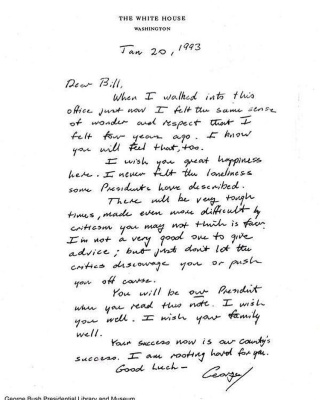 THE WHITE HOUSE
WASHINGTON
Jan 20, 1993
Dear Bill,
When I walked into this
office just now I felt the same sense
of wonder and respect that I
felt four years ago. I know
you will feel that, too.
I wish you great happiness
here. I never felt the loneliness
some Presidents have described.
There will be very tough
times, made even more difficult by
criticism you may not think is fair.
I'm not a very good one to give
advice; but just don't let the
critics discourage you or push
you off course.
You will be our President
when you read this note. I wish
you well. I wish your family
well.
Your success now is our country's
success. I am rooting hard for you.
Good Luck —
George
George Bush Presidential Library and Museum